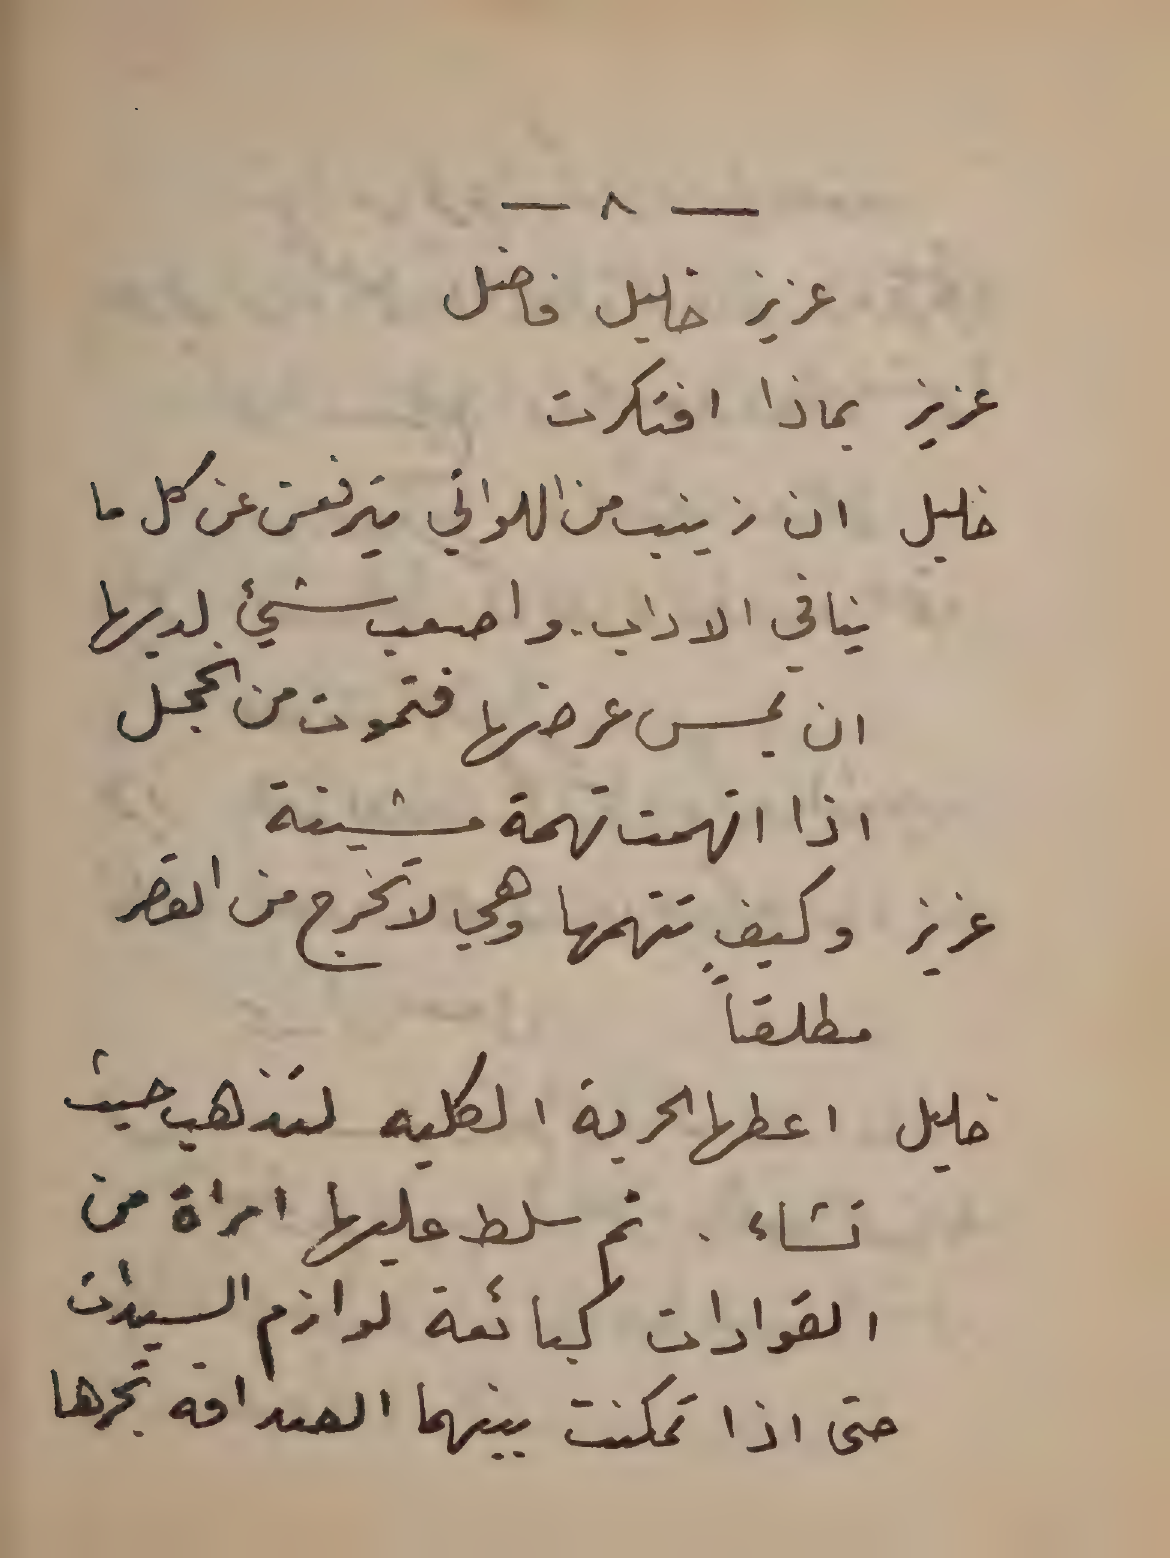 — ٨ —
عزيز خليل فاضل
عزيز بماذا افتكرت
خليل ان زينب من اللواتي يترفعن عن كل ما
ينافي الاداب. واصعب شيئ لديها
ان يمس عرضها فتموت من الخجل
اذا اتهمت تهمة مشينة
عزيز وكيف تتهمها وهي لا تخرج من القصر
مطلقاً
خليل اعطها الحرية الكليه لتذهب حيث
تشاء . ثم سلط عليها امراة من
القوادات كبائعة لوازم السيدات
حتى اذا تمكنت بينهما الصداقه تجرها